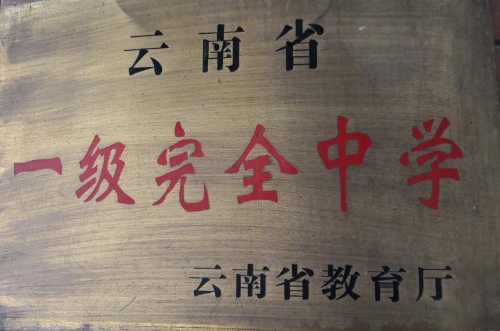 云南省
一级完全中学
云南省教育厅